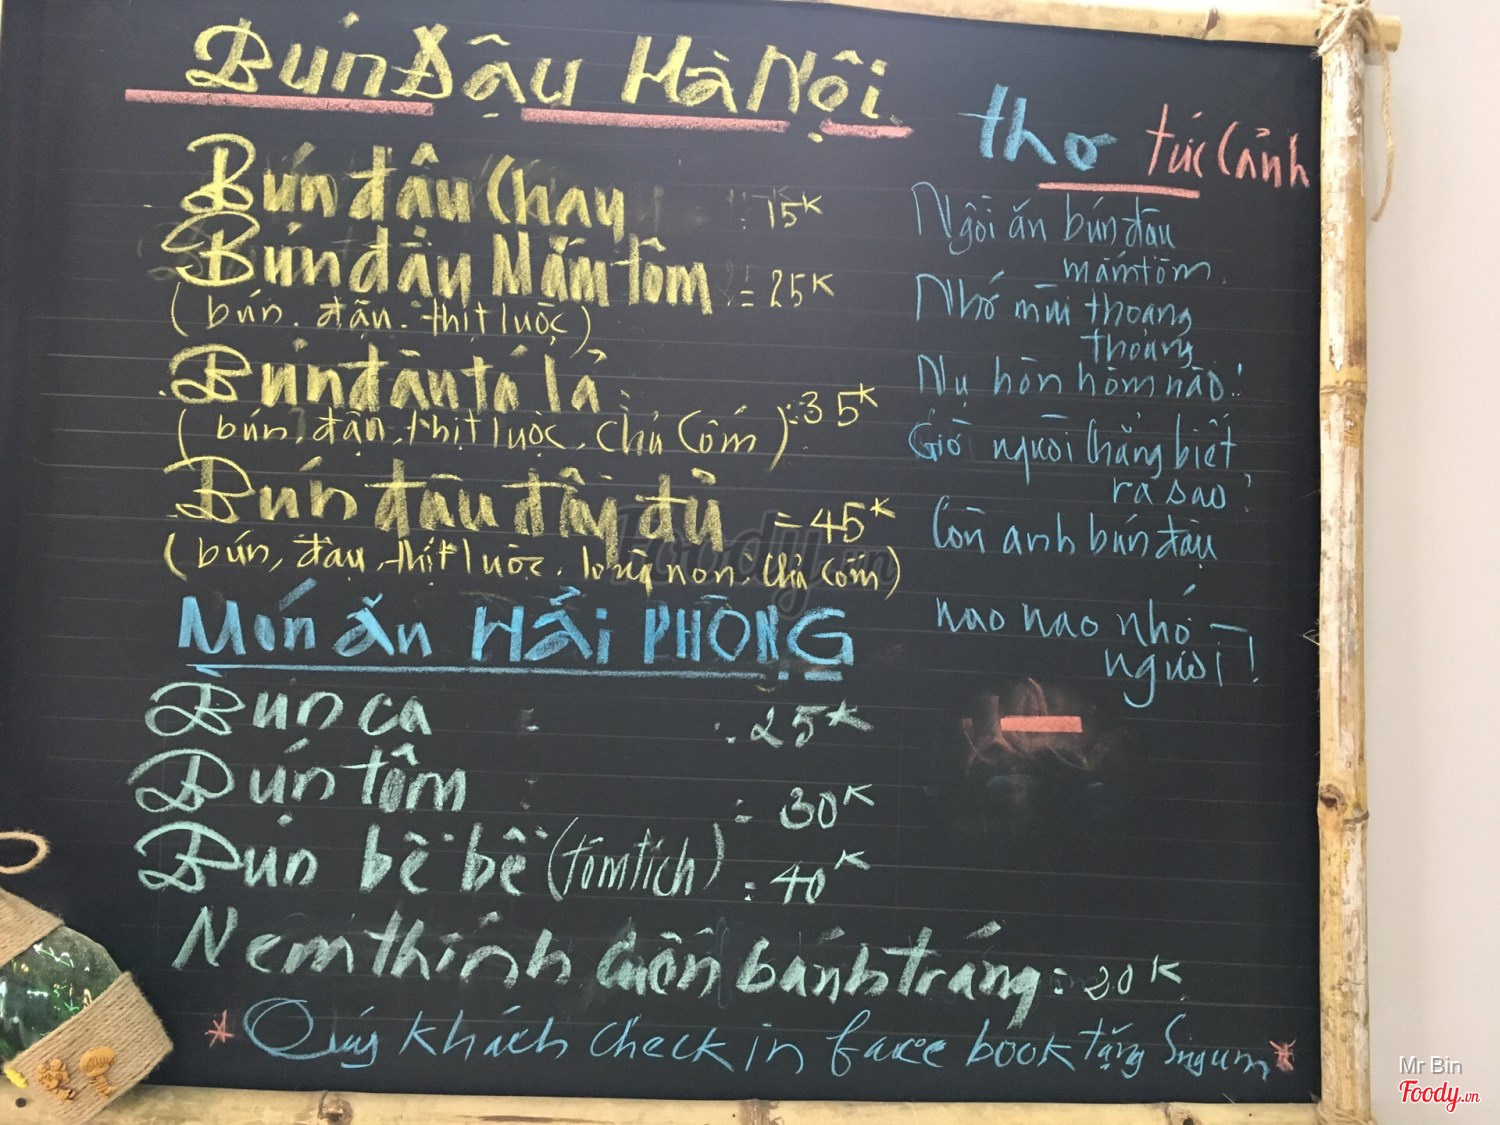 Bún Đậu Hà Nội
Bún đậu Chay : 15K
Bún đậu Mắm tôm = 25K
(bún. đậu. thịt luộc)
Bún đậu tá lả : 35K
(bún, đậu, thịt luộc, chả Cốm)
Bún đậu đầy đủ = 45K
(bún, đậu, thịt luộc, lòng non, chả Cốm)
Món ăn HẢi PHÒNG
Bún cá : 25K
Bún tôm : 30K
Bún bề bề (tôm tích) : 40K
Nem thính Cuốn bánh tráng : 20K
* Quý khách check in face book tặng 5 ngum *
thơ tức Cảnh
Ngồi ăn bún đậu
mắm tôm.
Nhớ mùi thoang
thoảng
Nụ hôn hôm nào!
Giờ người chẳng biết
ra sao?
Còn anh bún đậu
nao nao nhớ –
người!
Foody.vn
Mr Bin
Foody.vn